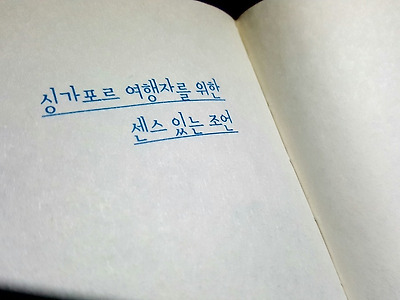 싱가포르 여행자를 위한
센스 있는 조언